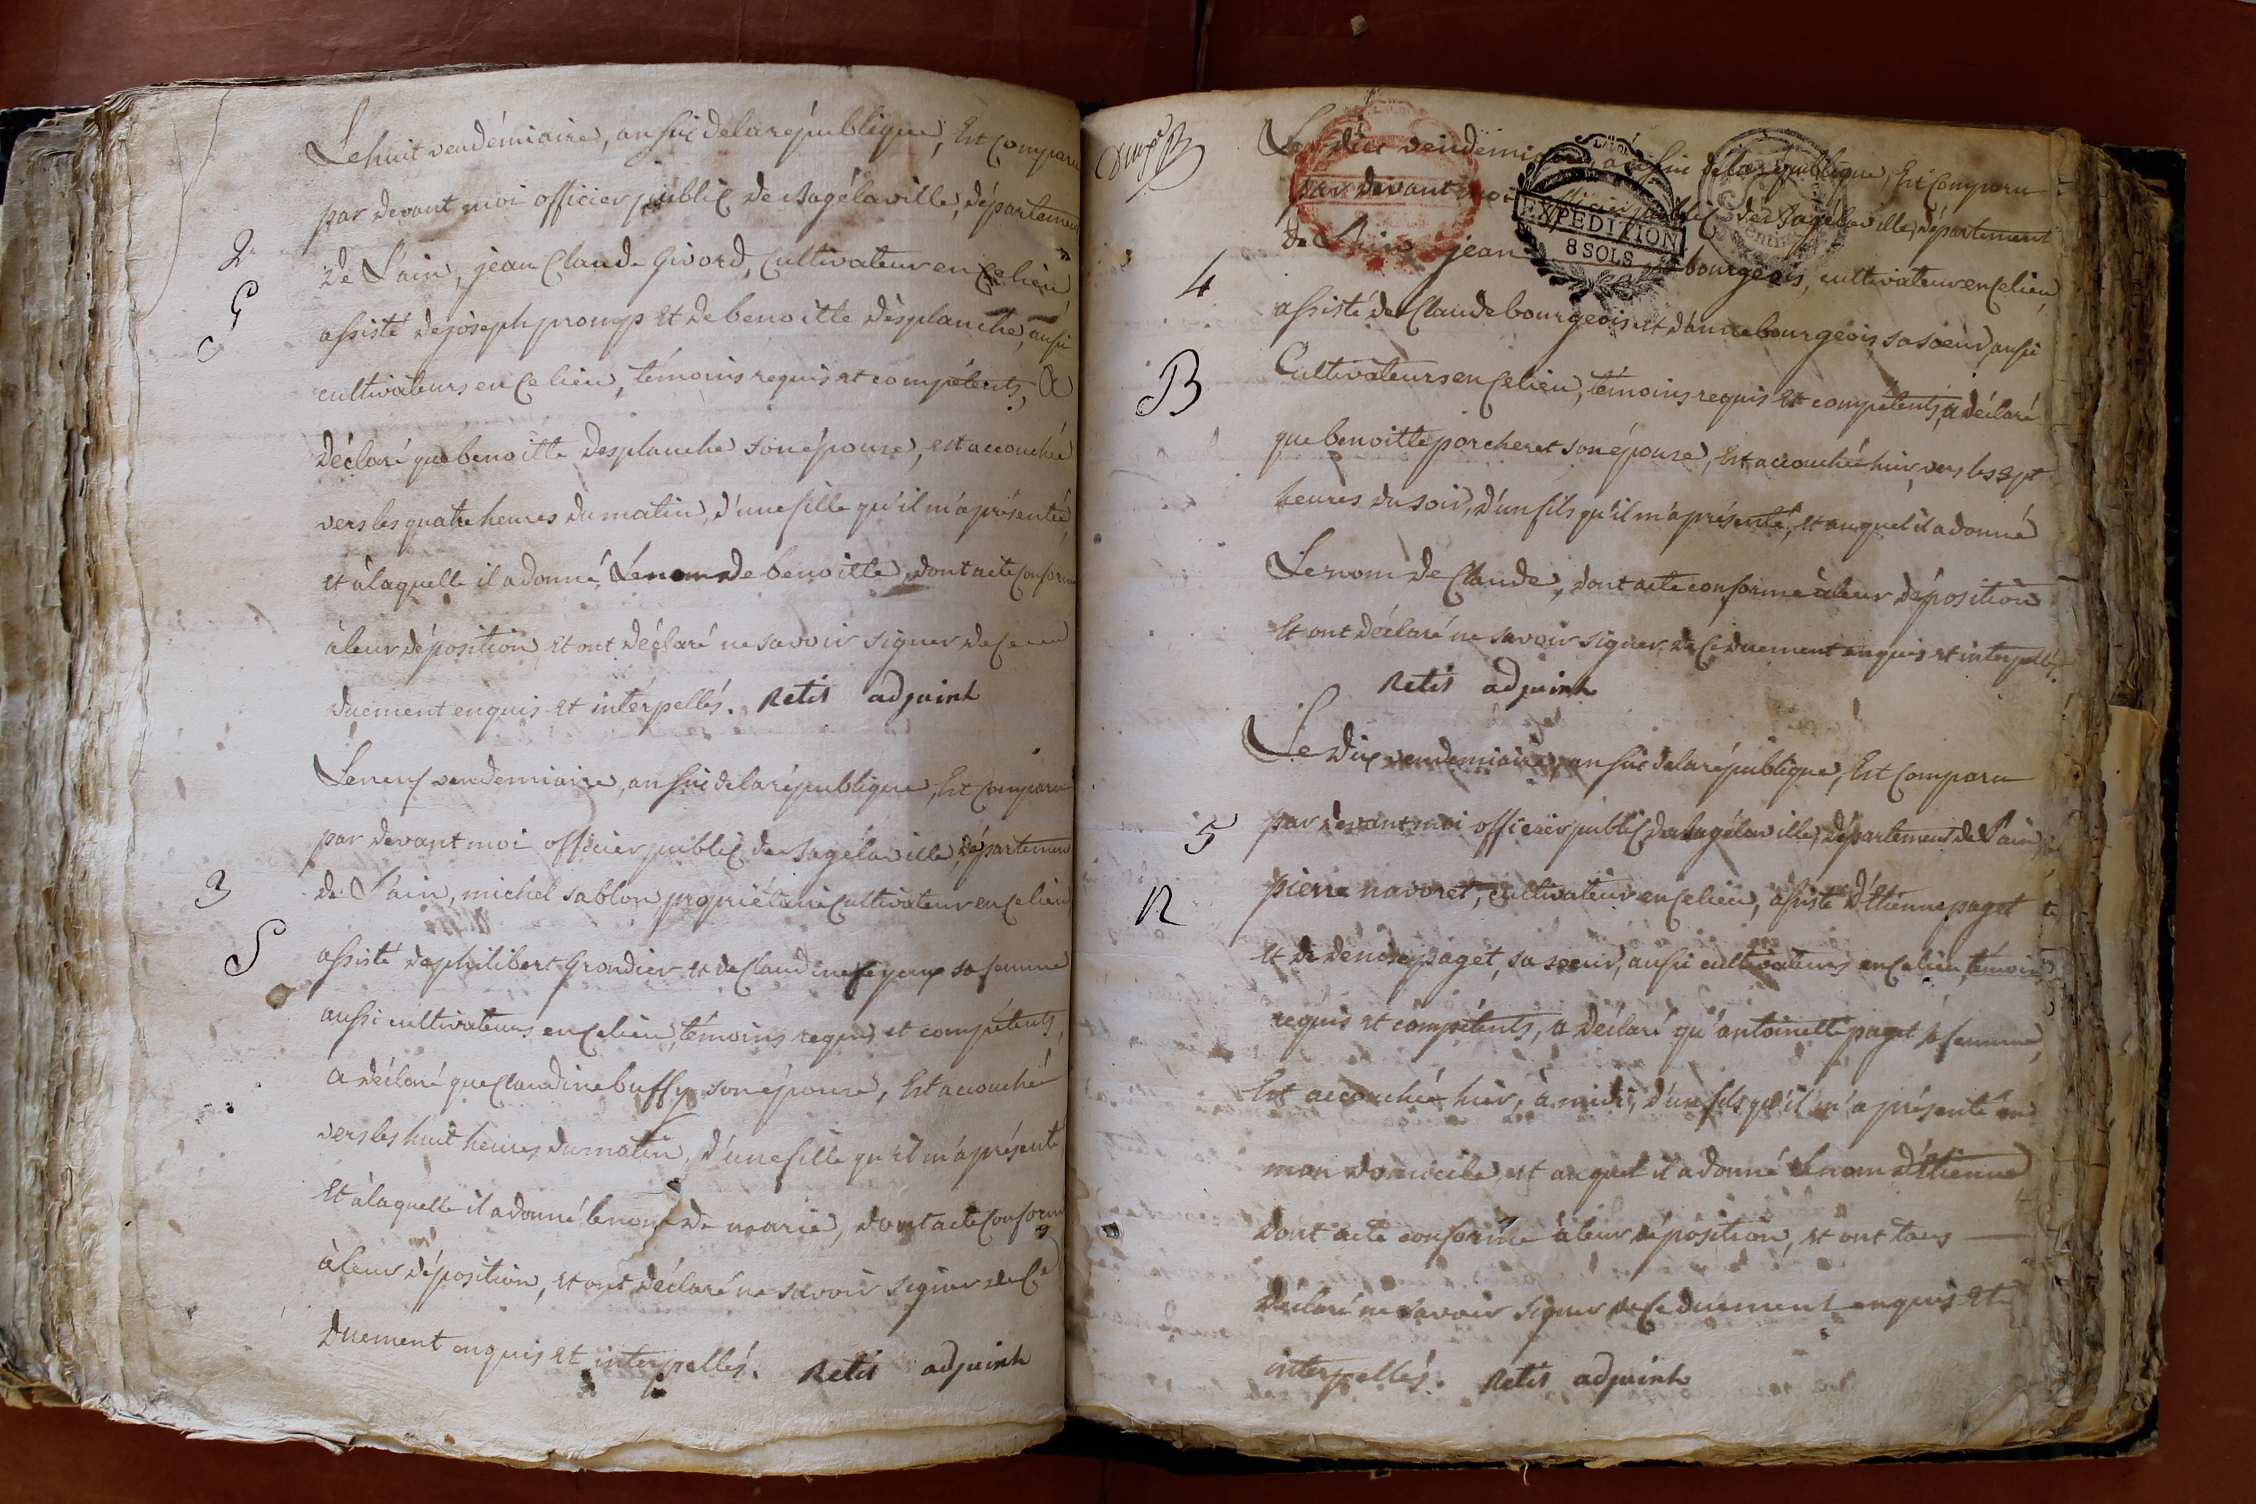 Le huit vendémiaire, an six de la république, Est Comparu
par devant moi officier public de Bagélaville, département
2
de L'ain, jean Claude Givord, Cultivateur en Ce lieu
G
assisté de joseph promp et de benoitte desplanche, aussi
cultivateurs en Ce lieu, témoins requis et compétents, a
Déclaré que benoitte Desplanche son épouse, est accouchée
vers les quatre heures du matin, d'une fille qu'il m'a présentée,
et à laquelle il a donné Le nom de benoitte, dont acte Conforme
à leur déposition, et ont déclaré ne savoir signer de Ce
duement enquis et interpellés. Retis adjoint
Le neuf vendémiaire, an six de la république, Est Comparu
par devant moi officier public de Bagélaville, département
3
de L'ain, michel sablon propriétaire Cultivateur en Ce lieu
S
assisté de philibert Grondier et de Claudine sa femme
aussi cultivateurs en Ce lieu, témoins requis et compétents,
a déclaré que Claudine buffy son épouse, Est accouchée
vers les huit heures du matin, d'une fille qu'il m'a présenté
Et à laquelle il a donné le nom de marie, dont acte Conforme
à leur déposition, et ont déclaré ne savoir signer de Ce
duement enquis et interpellés. Retis adjoint
Le dix vendémiaire, an six de la république, Est Comparu
par devant moi officier public de Bagélaville, département
de L'ain, jean bourgeois, cultivateur en Ce lieu
EXPEDITION
8 SOLS
4
assisté de Claude bourgeois et d'anne bourgeois, sa soeur, aussi
B
Cultivateurs en Ce lieu, témoins requis Et compétents, a déclaré
que benoitte porcheret son épouse, Est accouchée hier, vers les sept
heures du soir, d'un fils qu'il m'a présenté, et auquel il a donné
Le nom de Claude, dont acte conforme à leur déposition
Et ont déclaré ne savoir signer de Ce duement enquis et interpellés.
Retis adjoint
Le Dix vendémiaire, an six de la république, Est Comparu
5
par devant moi officier public de Bagélaville, département de L'ain,
R
pierre navoret, cultivateur en Ce lieu, assisté d'Etienne paget
et de denise paget, sa soeur, aussi cultivateurs en Ce lieu, témoins
requis et compétents, a déclaré qu'antoinette paget sa femme,
Est accouchée hier, à midi, d'un fils qu'il m'a présenté en
mon domicile, et auquel il a donné Le nom d'Etienne
Dont acte conforme à leur déposition, et ont tous
Déclaré ne savoir signer de Ce duement enquis Et
interpellés. Retis adjoint